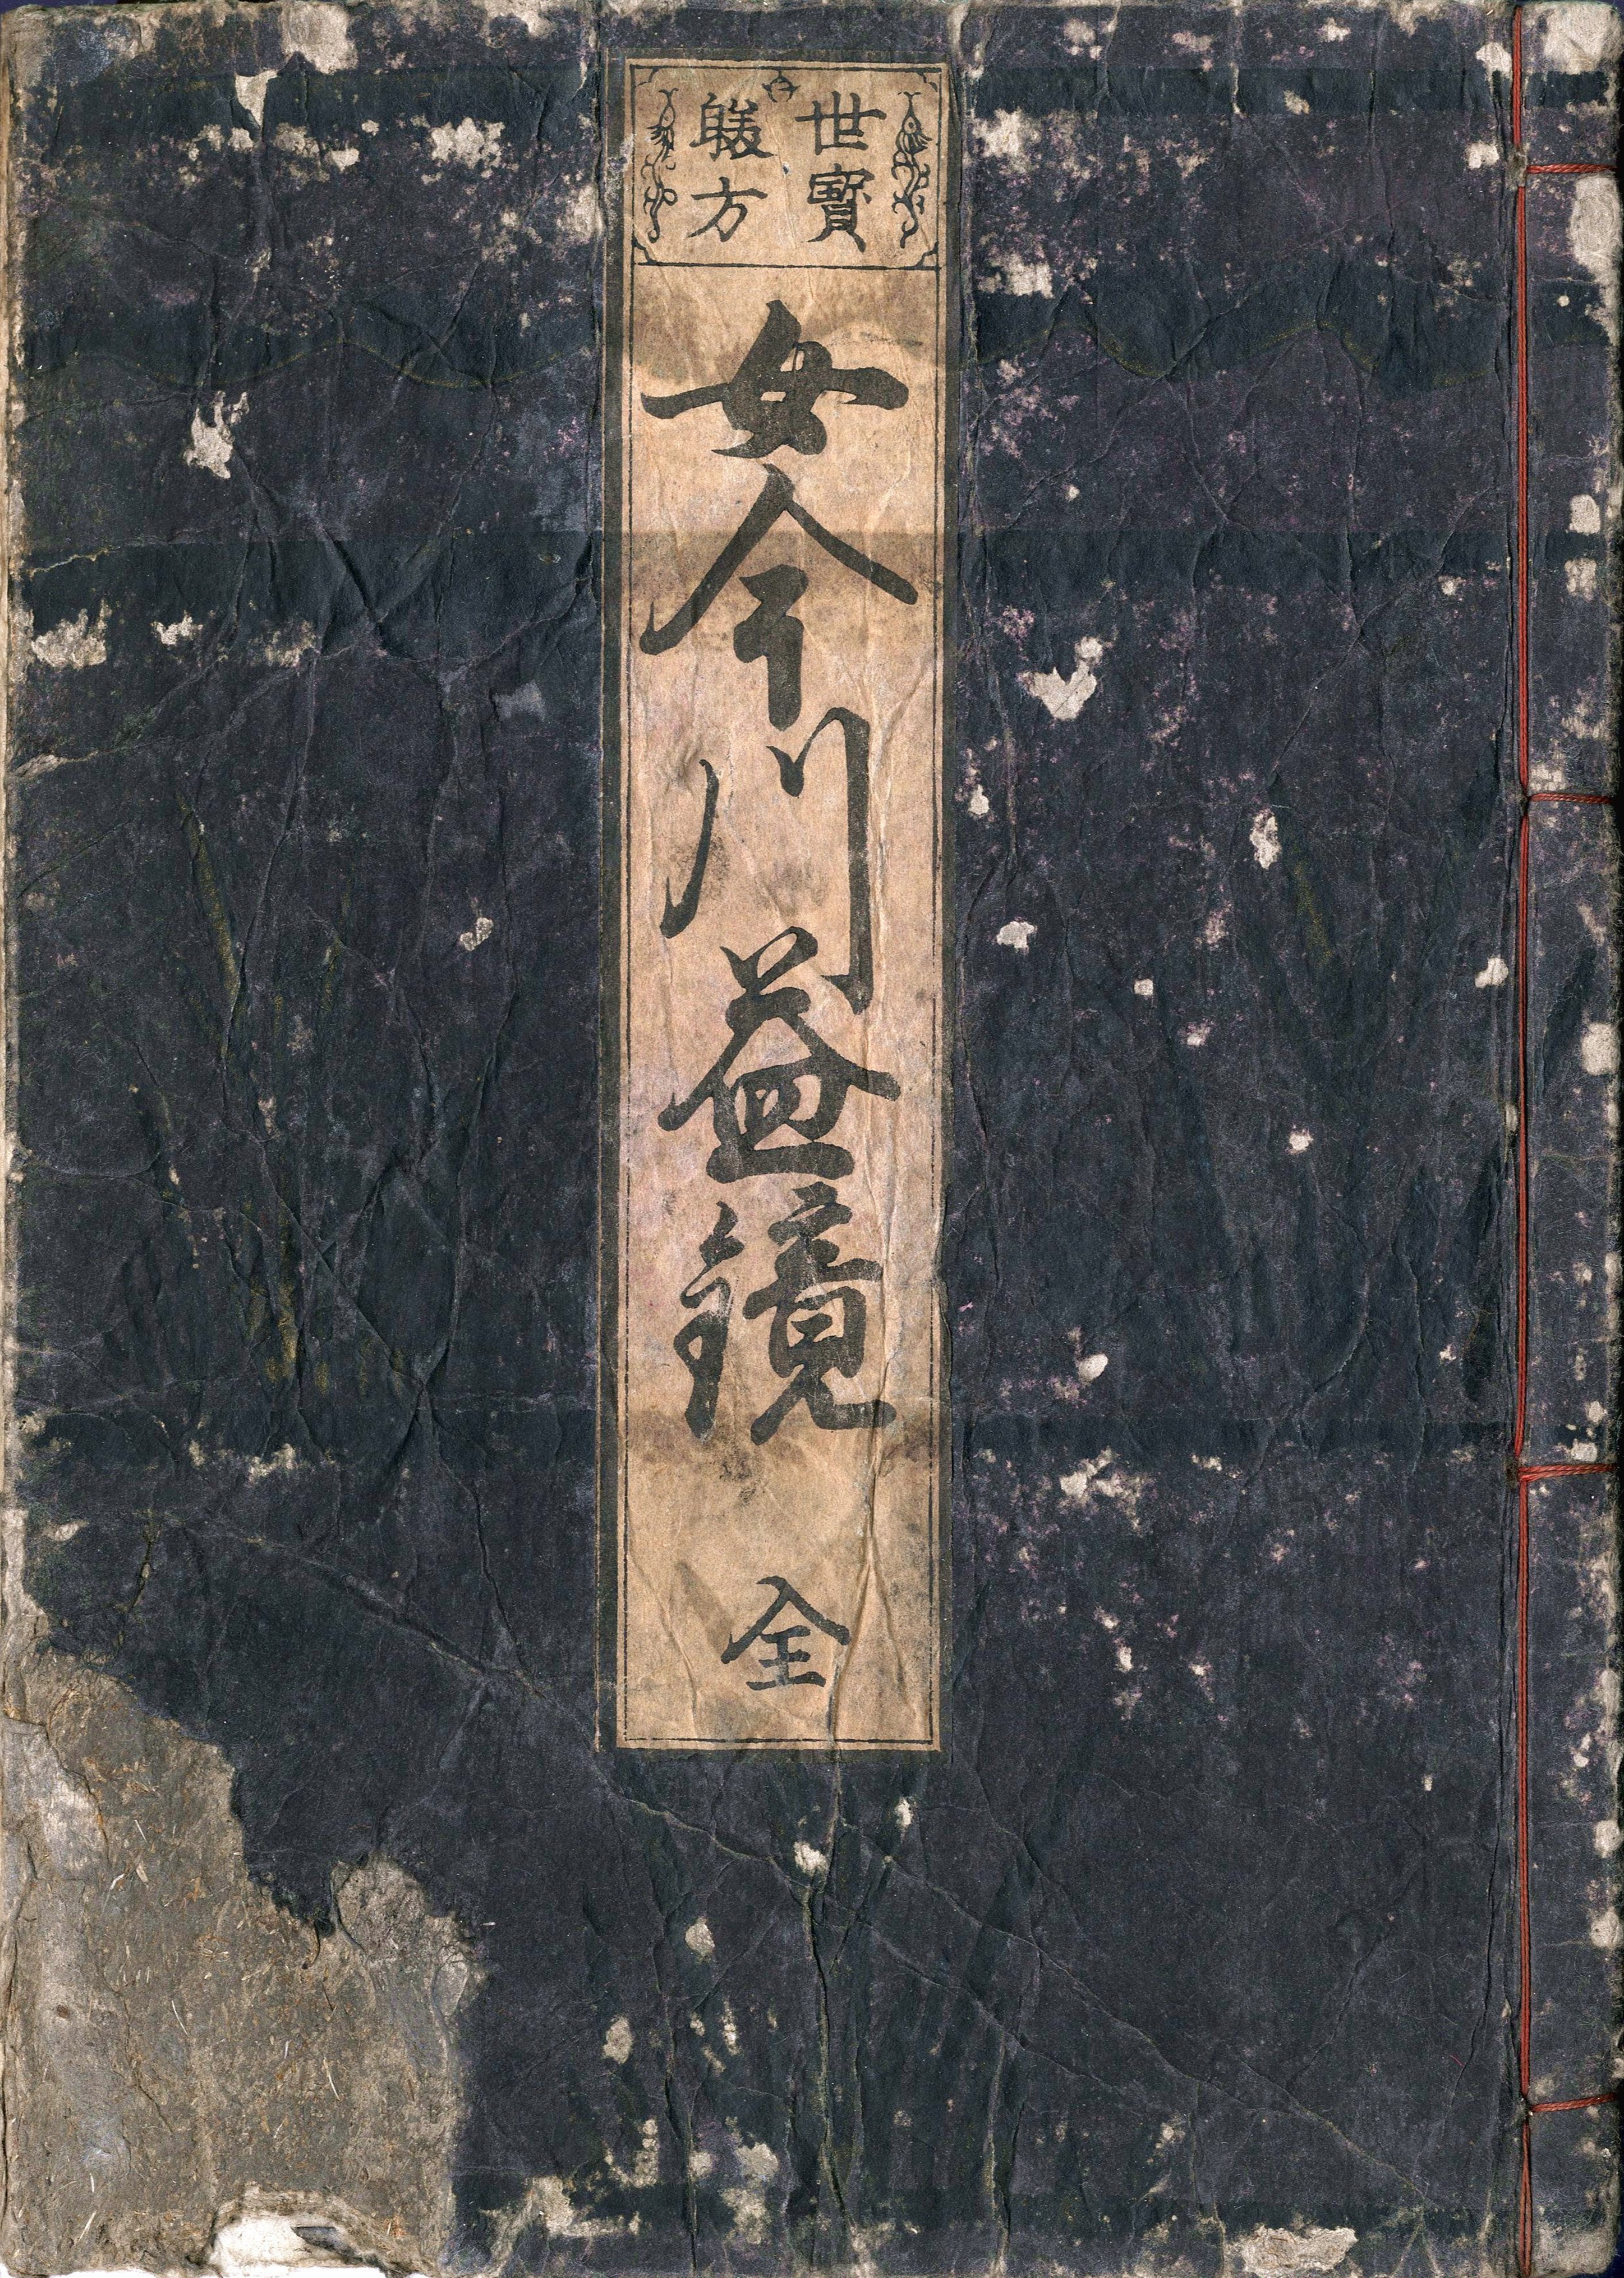 世寳
躾方
女今川益鏡
全